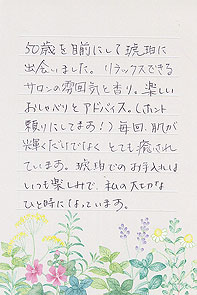 50歳を目前にして琥珀に
出会いました。リラックスできる
サロンの雰囲気と香り。楽しい
おしゃべりとアドバイス。(ホント
頼りにしてます！)毎回、肌が
輝くだけでなく とても癒され
ています。琥珀でのお手入れは
いつも楽しみで、私の大切な
ひと時になっています。